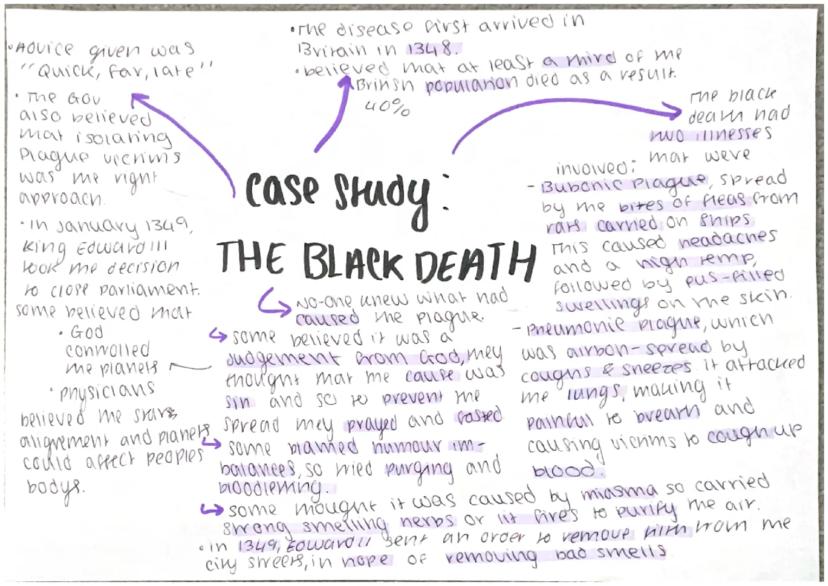 Case Study:
THE BLACK DEATH
•The disease first arrived in
Britain in 1348.
•believed that at least a third of the
British population died as a result.
40%
•Advice given was
"Quick, Far, late"
•The Gov
also believed
that isolating
Plague victims
was the right
approach.
•In January 1349,
King Edward III
took the decision
to close parliament.
some believed that
•God
controlled
the planets
•physicians
believed the stars
alignement and planets
could affect peoples
bodys.
The black
death had
two illnesses
that were
involved:
-Bubonic Plague, spread
by the bites of fleas from
rats carried on ships
This caused headaches
and a high temp,
followed by pus-filled
swellings on the skin.
-Pneumonic plague, which
was airbon-spread by
coughs & sneezes it attacked
the lungs, making it
painful to breath and
causing victims to cough up
blood.
No-one knew what had
caused the plague.
some believed it was a
Judgement from God, they
thought that the cause was
sin and so to prevent the
spread they prayed and fasted
some blamed humour im-
balances, so tried purging and
bloodletting.
some thought it was caused by miasma so carried
strong smelling herbs or lit fires to purify the air.
•In 1349, Edward II sent an order to remove filth from the
city streets, in hope of removing bad smells.